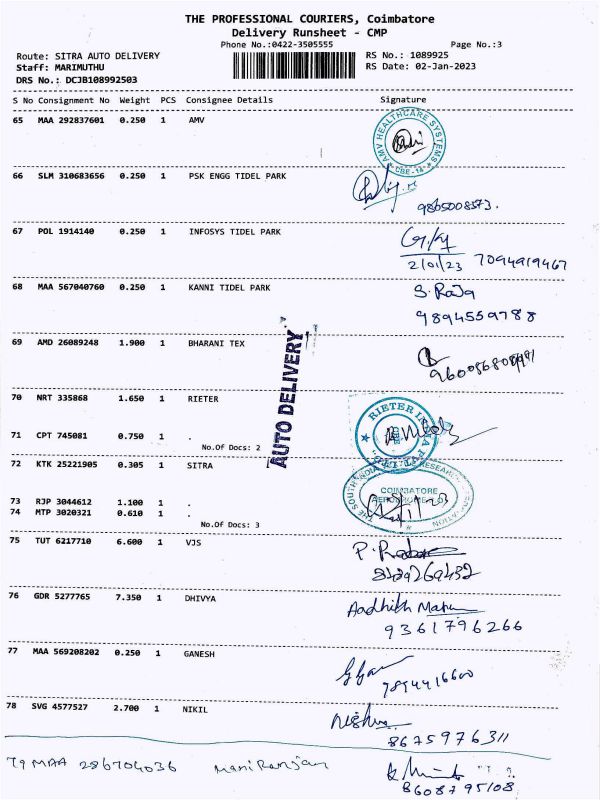 THE PROFESSIONAL COURIERS, Coimbatore
Delivery Runsheet - CMP
Phone No.:0422-3505555 Page No.:3
Route: SITRA AUTO DELIVERY RS No.: 1089925
Staff: MARIMUTHU RS Date: 02-Jan-2023
DRS No.: DCJB108992503
S No Consignment No Weight PCS Consignee Details Signature
65 MAA 292837601 0.250 1 AMV
AMV HEALTHCARE SYSTEMS
CBE-14
66 SLM 310683656 0.250 1 PSK ENGG TIDEL PARK
9865008573.
67 POL 1914140 0.250 1 INFOSYS TIDEL PARK
2/01/23 7094919467
68 MAA 567040760 0.250 1 KANNI TIDEL PARK
S. Raja
9894559788
69 AMD 26089248 1.900 1 BHARANI TEX
AUTO DELIVERY
70 NRT 335868 1.650 1 RIETER
RIETER INDIA
71 CPT 745081 0.750 1 .
No.Of Docs: 2
72 KTK 25221905 0.305 1 SITRA
THE SOUTH INDIA RESEARCH
COIMBATORE
73 RJP 3044612 1.100 1 .
74 MTP 3020321 0.610 1 .
No.Of Docs: 3
75 TUT 6217710 6.600 1 VJS
76 GDR 5277765 7.350 1 DHIVYA
9361796266
77 MAA 569208202 0.250 1 GANESH
7894416600
78 SVG 4577527 2.700 1 NIKIL
8675976311
79 MAA 286704036 Mani Ranjan
8608795108